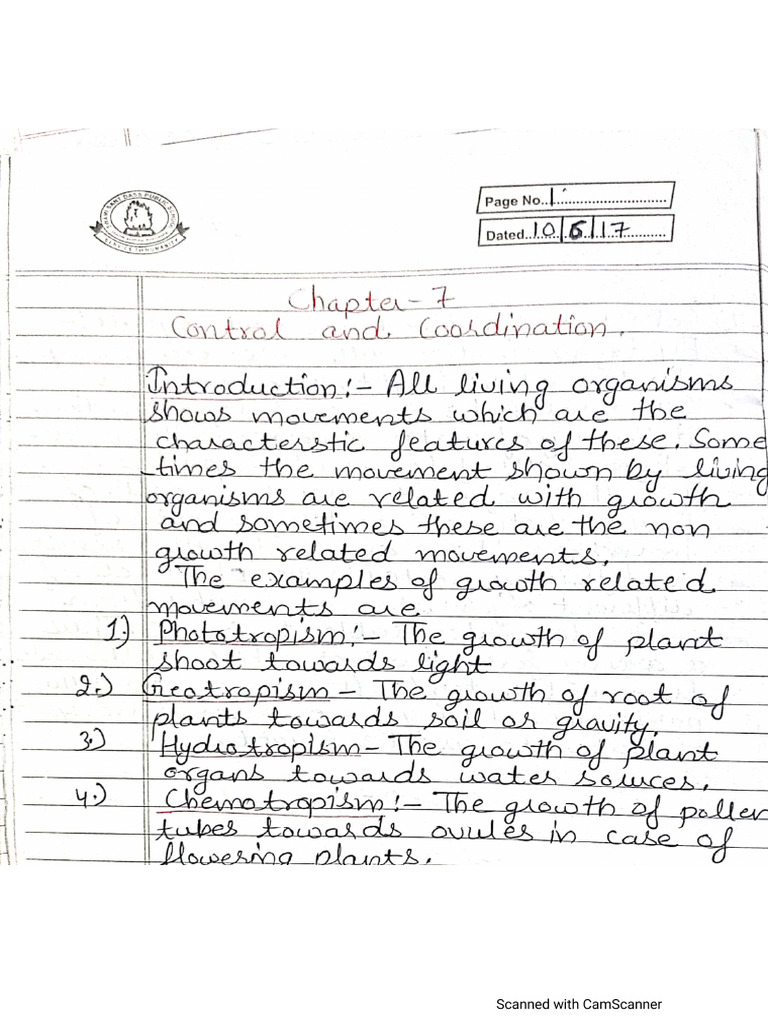 Page No..1..............................
Dated..10/6/17..........
Chapter-7
Control and Coordination.
Introduction:- All living organisms
shows movements which are the
characterstic features of these. Some
-times the movement shown by living
organisms are related with growth
and sometimes these are the non
growth related movements.
The examples of growth related
movements are
1.) Phototropism:- The growth of plant
shoot towards light
2.) Geotropism - The growth of root of
plants towards soil or gravity.
3.) Hydrotropism - The growth of plant
organs towards water sources.
4.) Chemotropism:- The growth of pollen
tubes towards ovules in case of
flowering plants.
Scanned with CamScanner